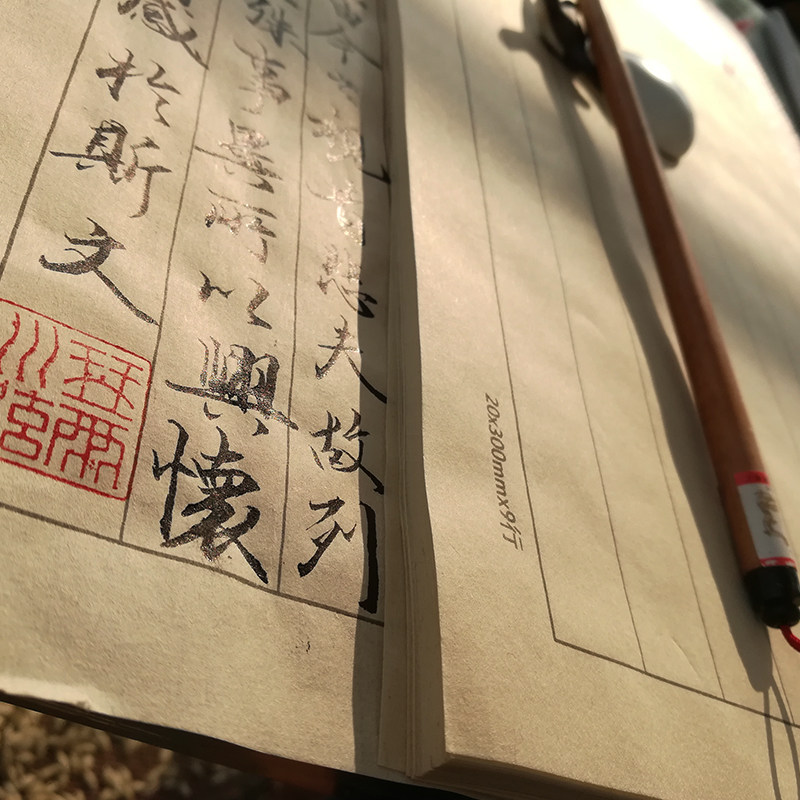 由今之視昔悲夫故列
殊事異所以興懷
感於斯文
20x300mmx9行